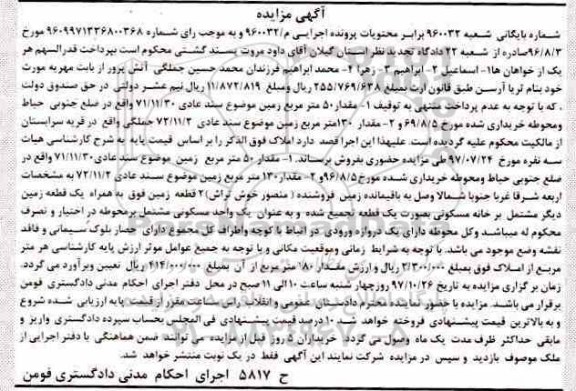 آگهی مزایده
شماره بایگانی شعبه ۹۶۰۰۳۲ برابر محتویات پرونده اجرایی م/۹۶۰۰۳۲ و به موجب رای شماره ۹۶۰۹۹۷۱۳۳۶۸۰۰۳۶۸ مورخ
۹۶/۸/۳ صادره از شعبه ۲۲ دادگاه تجدید نظر استان گیلان آقای داود مروت پسند گشتی محکوم است بپرداخت قدرالسهم هر
یک از خواهان ها۱- اسماعیل ۲- ابراهیم ۳- زهرا ۴- محمد ابراهیم فرزندان محمد حسین جملگی آتش پرور از بابت مهریه مورث
خود بنام ثریا آرسن طبق قانون ارث بمبلغ ۲۵۵/۷۶۹/۶۳۸ ریال ومبلغ ۱۱/۸۷۲/۸۱۹ ریال نیم عشر دولتی در حق صندوق دولت
، که با توجه به عدم پرداخت منتهی به توقیف ۱- مقدار۵۰ متر مربع زمین موضوع سند عادی ۷۱/۱۱/۳۰ واقع در ضلع جنوبی حیاط
ومحوطه خریداری شده مورخ ۶۹/۸/۵ و ۲- مقدار ۱۳۰متر مربع زمین موضوع سند عادی ۷۲/۱۱/۲ جملگی واقع در قریه سرابستان
از مالکیت محکوم علیه گردیده است. علیهذا این اجرا قصد دارد املاک فوق الذکر را بر اساس قیمت پایه به شرح کارشناسی هیات
سه نفره مورخ ۹۷/۰۷/۲۴ طی مزایده حضوری بفروش برساند. ۱- مقدار ۵۰ متر مربع زمین موضوع سند عادی ۷۱/۱۱/۳۰ واقع در
ضلع جنوبی حیاط ومحوطه خریداری شده مورخ ۹۶/۸/۵ و۲- مقدار۱۳۰ متر مربع زمین موضوع سند عادی ۷۲/۱۱/۲ به مشخصات
اربعه شرقا غربا جنوبا شمالا وصل به باقیمانده زمین فروشنده ( منصور خوش تراش) ۲ قطعه زمین فوق به همراه یک قطعه زمین
دیگر مشتمل بر خانه مسکونی بصورت یک قطعه تجمیع شده و به عنوان یک واحد مسکونی مشتمل برمحوطه در اختیار و تصرف
محکوم له میباشد وکل محوطه دارای یک دروازه ورودی در انباط با کوچه واطراف کل مجموع دارای حصار بلوک سیمانی و فاقد
نقشه وضع موجود می باشد. با توجه به شرایط زمانی وموقعیت مکانی و با توجه به جمیع عوامل موثر ارزش پایه کارشناسی هر متر
مربع از املاک فوق بمبلغ ۲/۳۰۰/۰۰۰ ریال و ارزش مقدار ۱۸۰ متر مربع از آن بمبلغ ۴۱۴/۰۰۰/۰۰۰ ریال تعیین وبرآورد می گردد.
زمان برگزاری مزایده به تاریخ ۹۷/۱۰/۲۶ روزچهار شنبه ساعت ۱۰ الی ۱۱ صبح در محل دفتر اجرای احکام مدنی دادگستری فومن
برقرار می باشد. مزایده با حضور نماینده محترم دادستان عمومی و انقلاب راس ساعت مقرر از قیمت پایه ارزیابی شده شروع
و به بالاترین قیمت پیشنهادی فروخته خواهد شد ۱۰ درصد قیمت پیشنهادی فی المجلس بحساب سپرده دادگستری واریز و
مابقی حداکثر ظرف مدت یک ماه وصول می گردد. خریداران ۵ روز قبل از مزایده می توانند ضمن هماهنگی با دفتر اجرایی از
ملک موصوف بازدید و سپس در مزایده شرکت نمایند این آگهی فقط در یک نوبت منتشر خواهد شد.
ح ۵۸۱۷ اجرای احکام مدنی دادگستری فومن